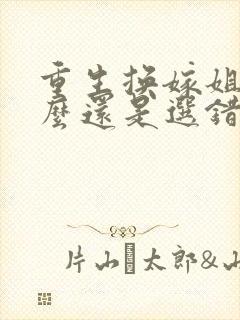 重生換嫁姐
麼還是選錯
片山 太郎&山